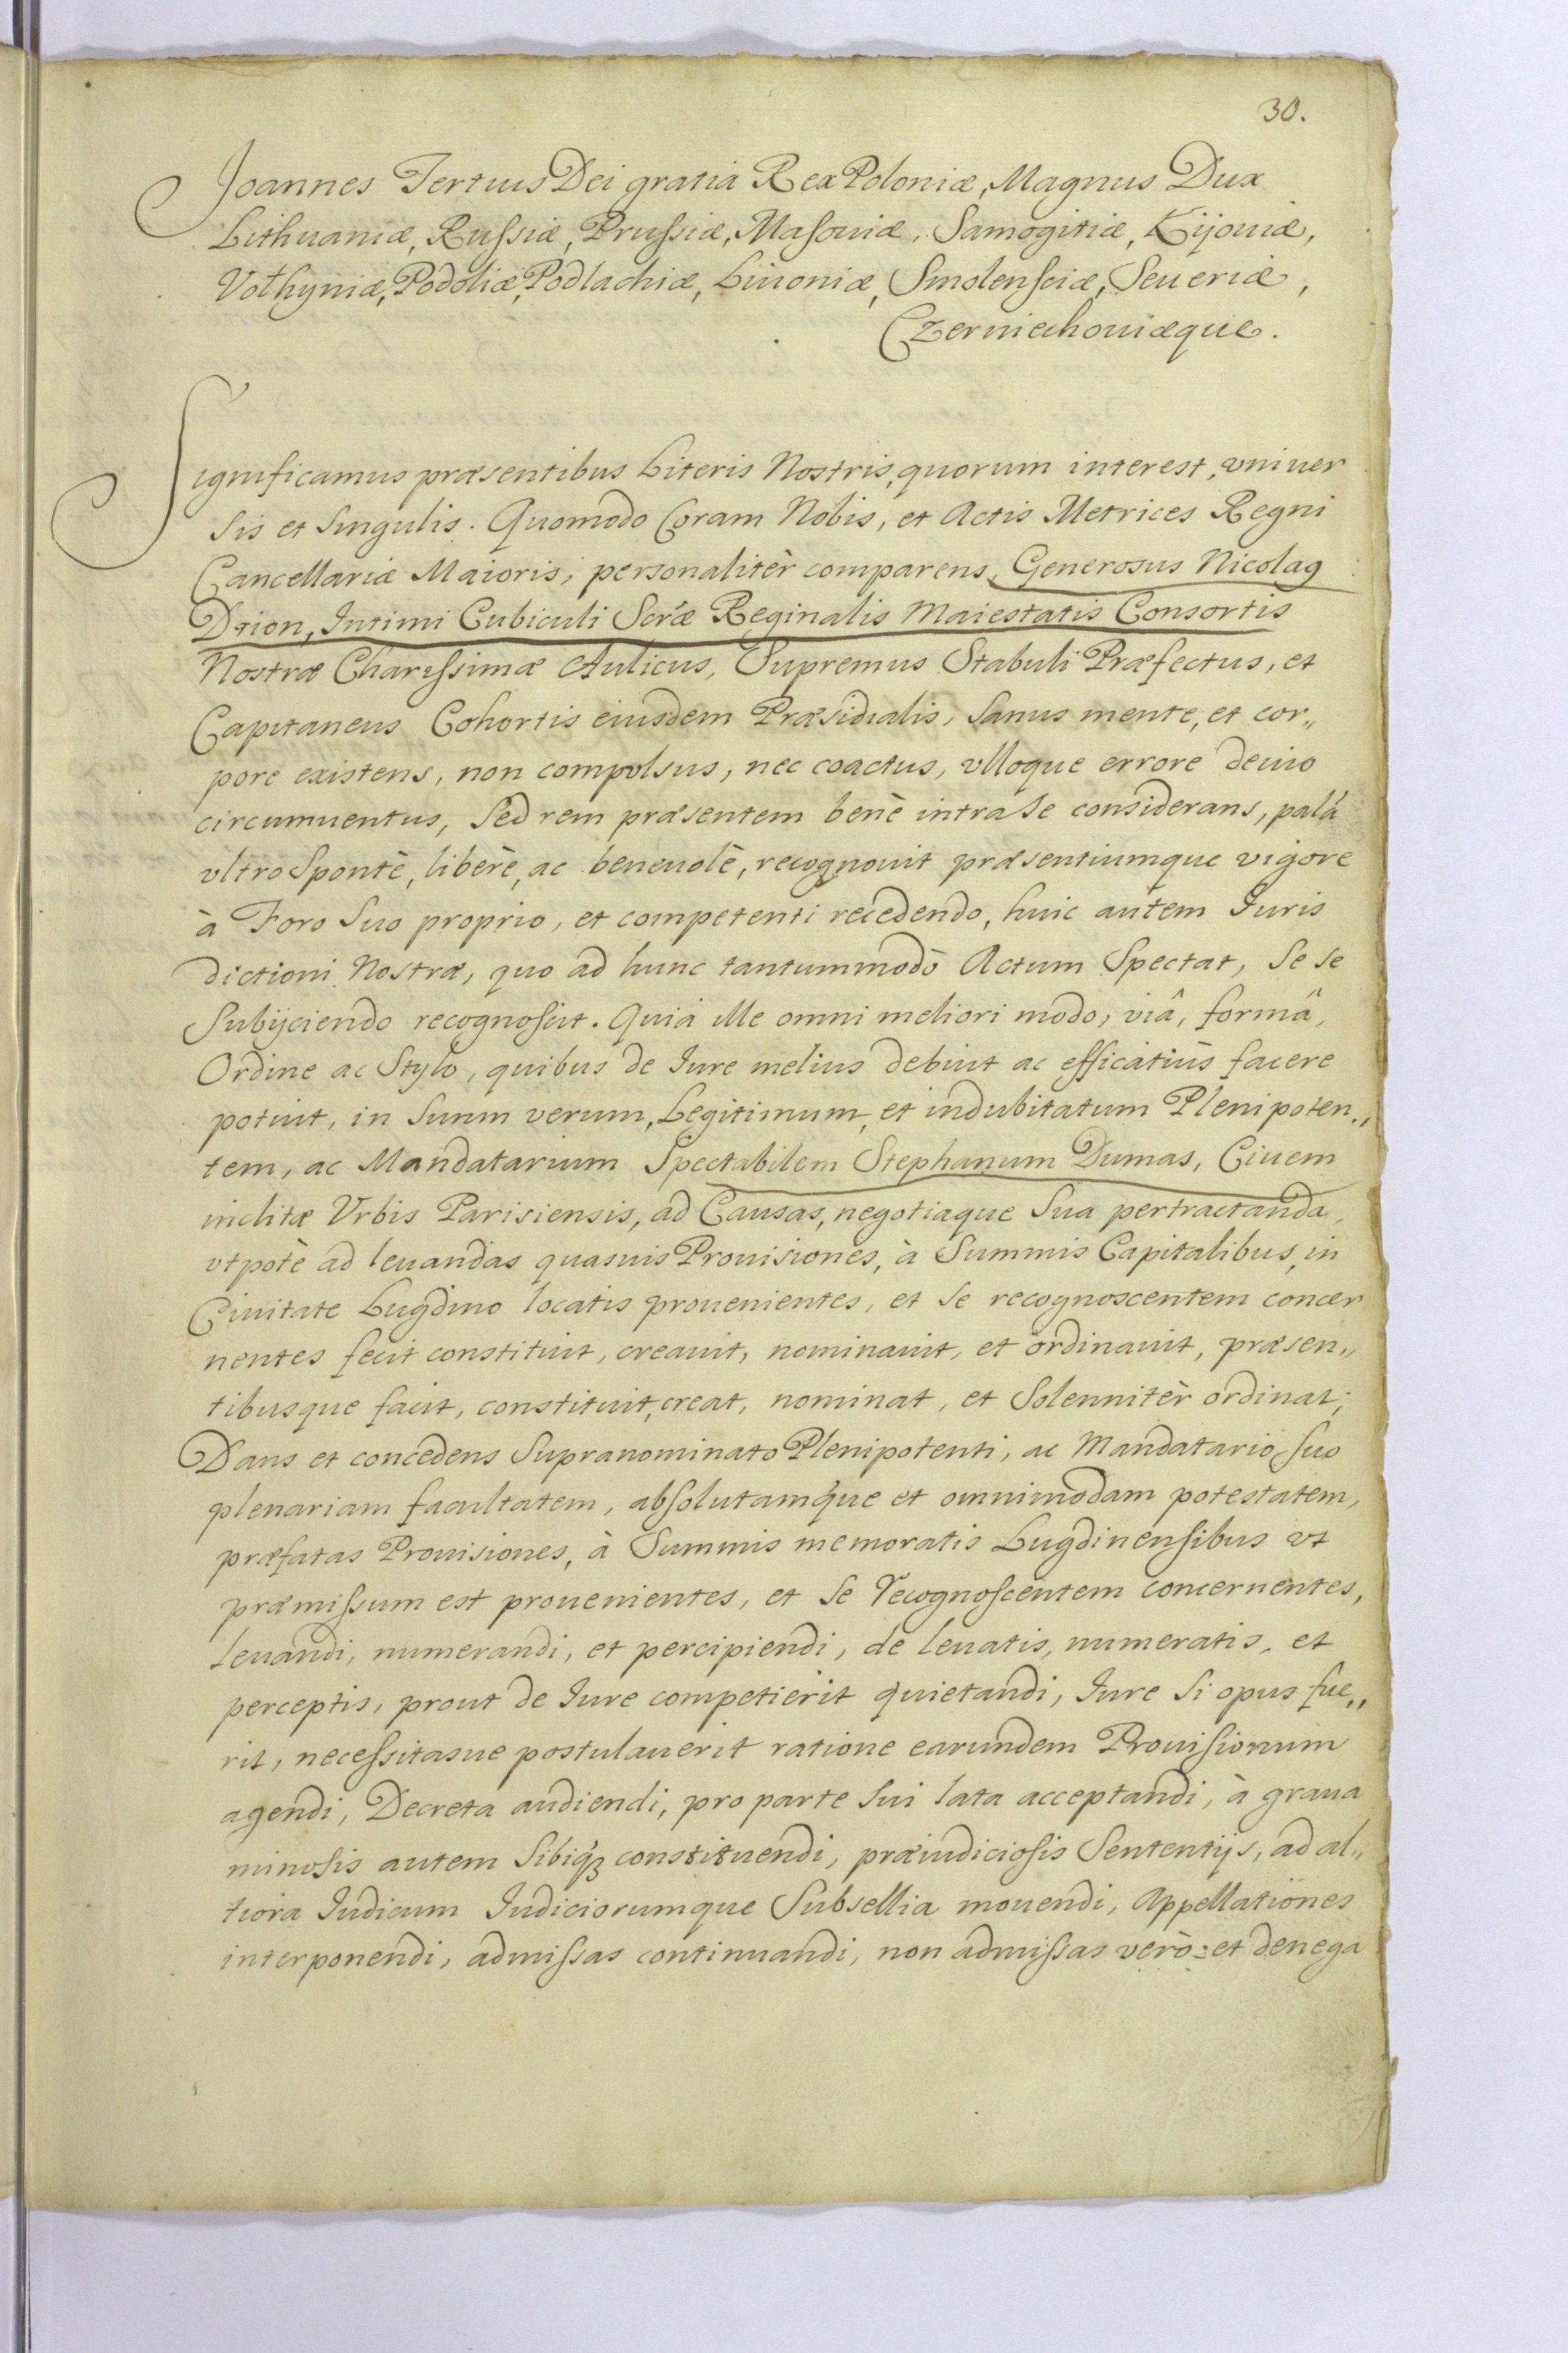 30.
Joannes Tertius Dei gratia Rex Poloniæ, Magnus Dux
Lithuaniæ, Russiæ, Prussiæ, Masouiæ, Samogitiæ, Kijouiæ,
Volhyniæ, Podoliæ, Podlachiæ, Liuoniæ, Smolensciæ, Seueriæ,
Czerniechouiæque.
Significamus præsentibus Literis Nostris, quorum interest, vniuer
sis et singulis. Quomodo Coram Nobis, et Actis Metrices Regni
Cancellariæ Maioris, personalitèr comparens, Generosus Nicolaꝯ
Drion, Intimi Cubiculi Scræ Reginalis Maiestatis Consortis
Nostræ Charissimæ Aulicus, Supremus Stabuli Præfectus, et
Capitaneus Cohortis eiusdem Præsidialis, Sanus mente, et cor„
pore existens, non compulsus, nec coactus, vlloque errore deuio
circumuentus, Sed rem præsentem benè intra se considerans, palã
vltro Spontè, liberè, ac beneuolè, recognouit præsentiumque vigore
à Foro Suo proprio, et competenti recedendo, huic autem Iuris
dictioni Nostræ, quo ad hunc tantummodò Actum Spectat, Se se
Subijciendo recognoscit. Quia Ille omni meliori modo, viâ, formâ,
Ordine ac Stylo, quibus de Iure melius debuit ac efficatiùs facere
potuit, in Suum verum, Legitimum, et indubitatum Plenipoten„
tem, ac Mandatarium Spectabilem Stephanum Dumas, Ciuem
inclitæ Vrbis Parisiensis, ad Causas, negotiaque Sua pertractanda,
vtpotè ad leuandas quasuis Prouisiones, à Summis Capitalibus, in
Ciuitate Lugdino locatis prouenientes, et Se recognoscentem concer
nentes fecit constituit, creauit, nominauit, et ordinauit, præsen„
tibusque facit, constituit, creat, nominat, et Solennitèr ordinat;
Dans et concedens Supranominato Plenipotenti, ac Mandatario Suo
plenariam facultatem, absolutamque et omnimodam potestatem,
præfatas Prouisiones, à Summis memoratis Lugdinensibus vt
præmissum est prouenientes, et Se recognoscentem concernentes,
leuandi, numerandi, et percipiendi, de leuatis, numeratis, et
perceptis, prout de Iure competierit quietandi, Iure Si opus fue„
rit, necessitasue postulauerit ratione earundem Prouisionum
agendi, Decreta audiendi, pro parte Sui lata acceptandi, à graua
minosis autem Sibiq́ȝ constituendi, præiudiciosis Sententijs, ad al„
tiora Iudicum Iudiciorumque Subsellia mouendi, Appellationes
interponendi, admissas continuandi, non admissas verò et denega